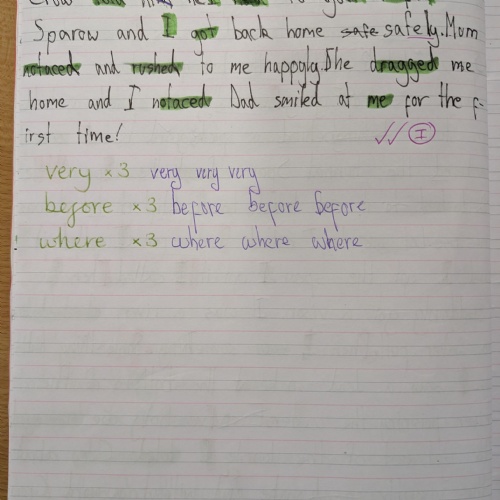 Sparow and I got back home safe safely. Mom
notaced and rushed to me happyly. She dragged me
home and I notaced Dad smiled at me for the f-
irst time!
I
very ×3 very very very
before ×3 before before before
! where ×3 where where where